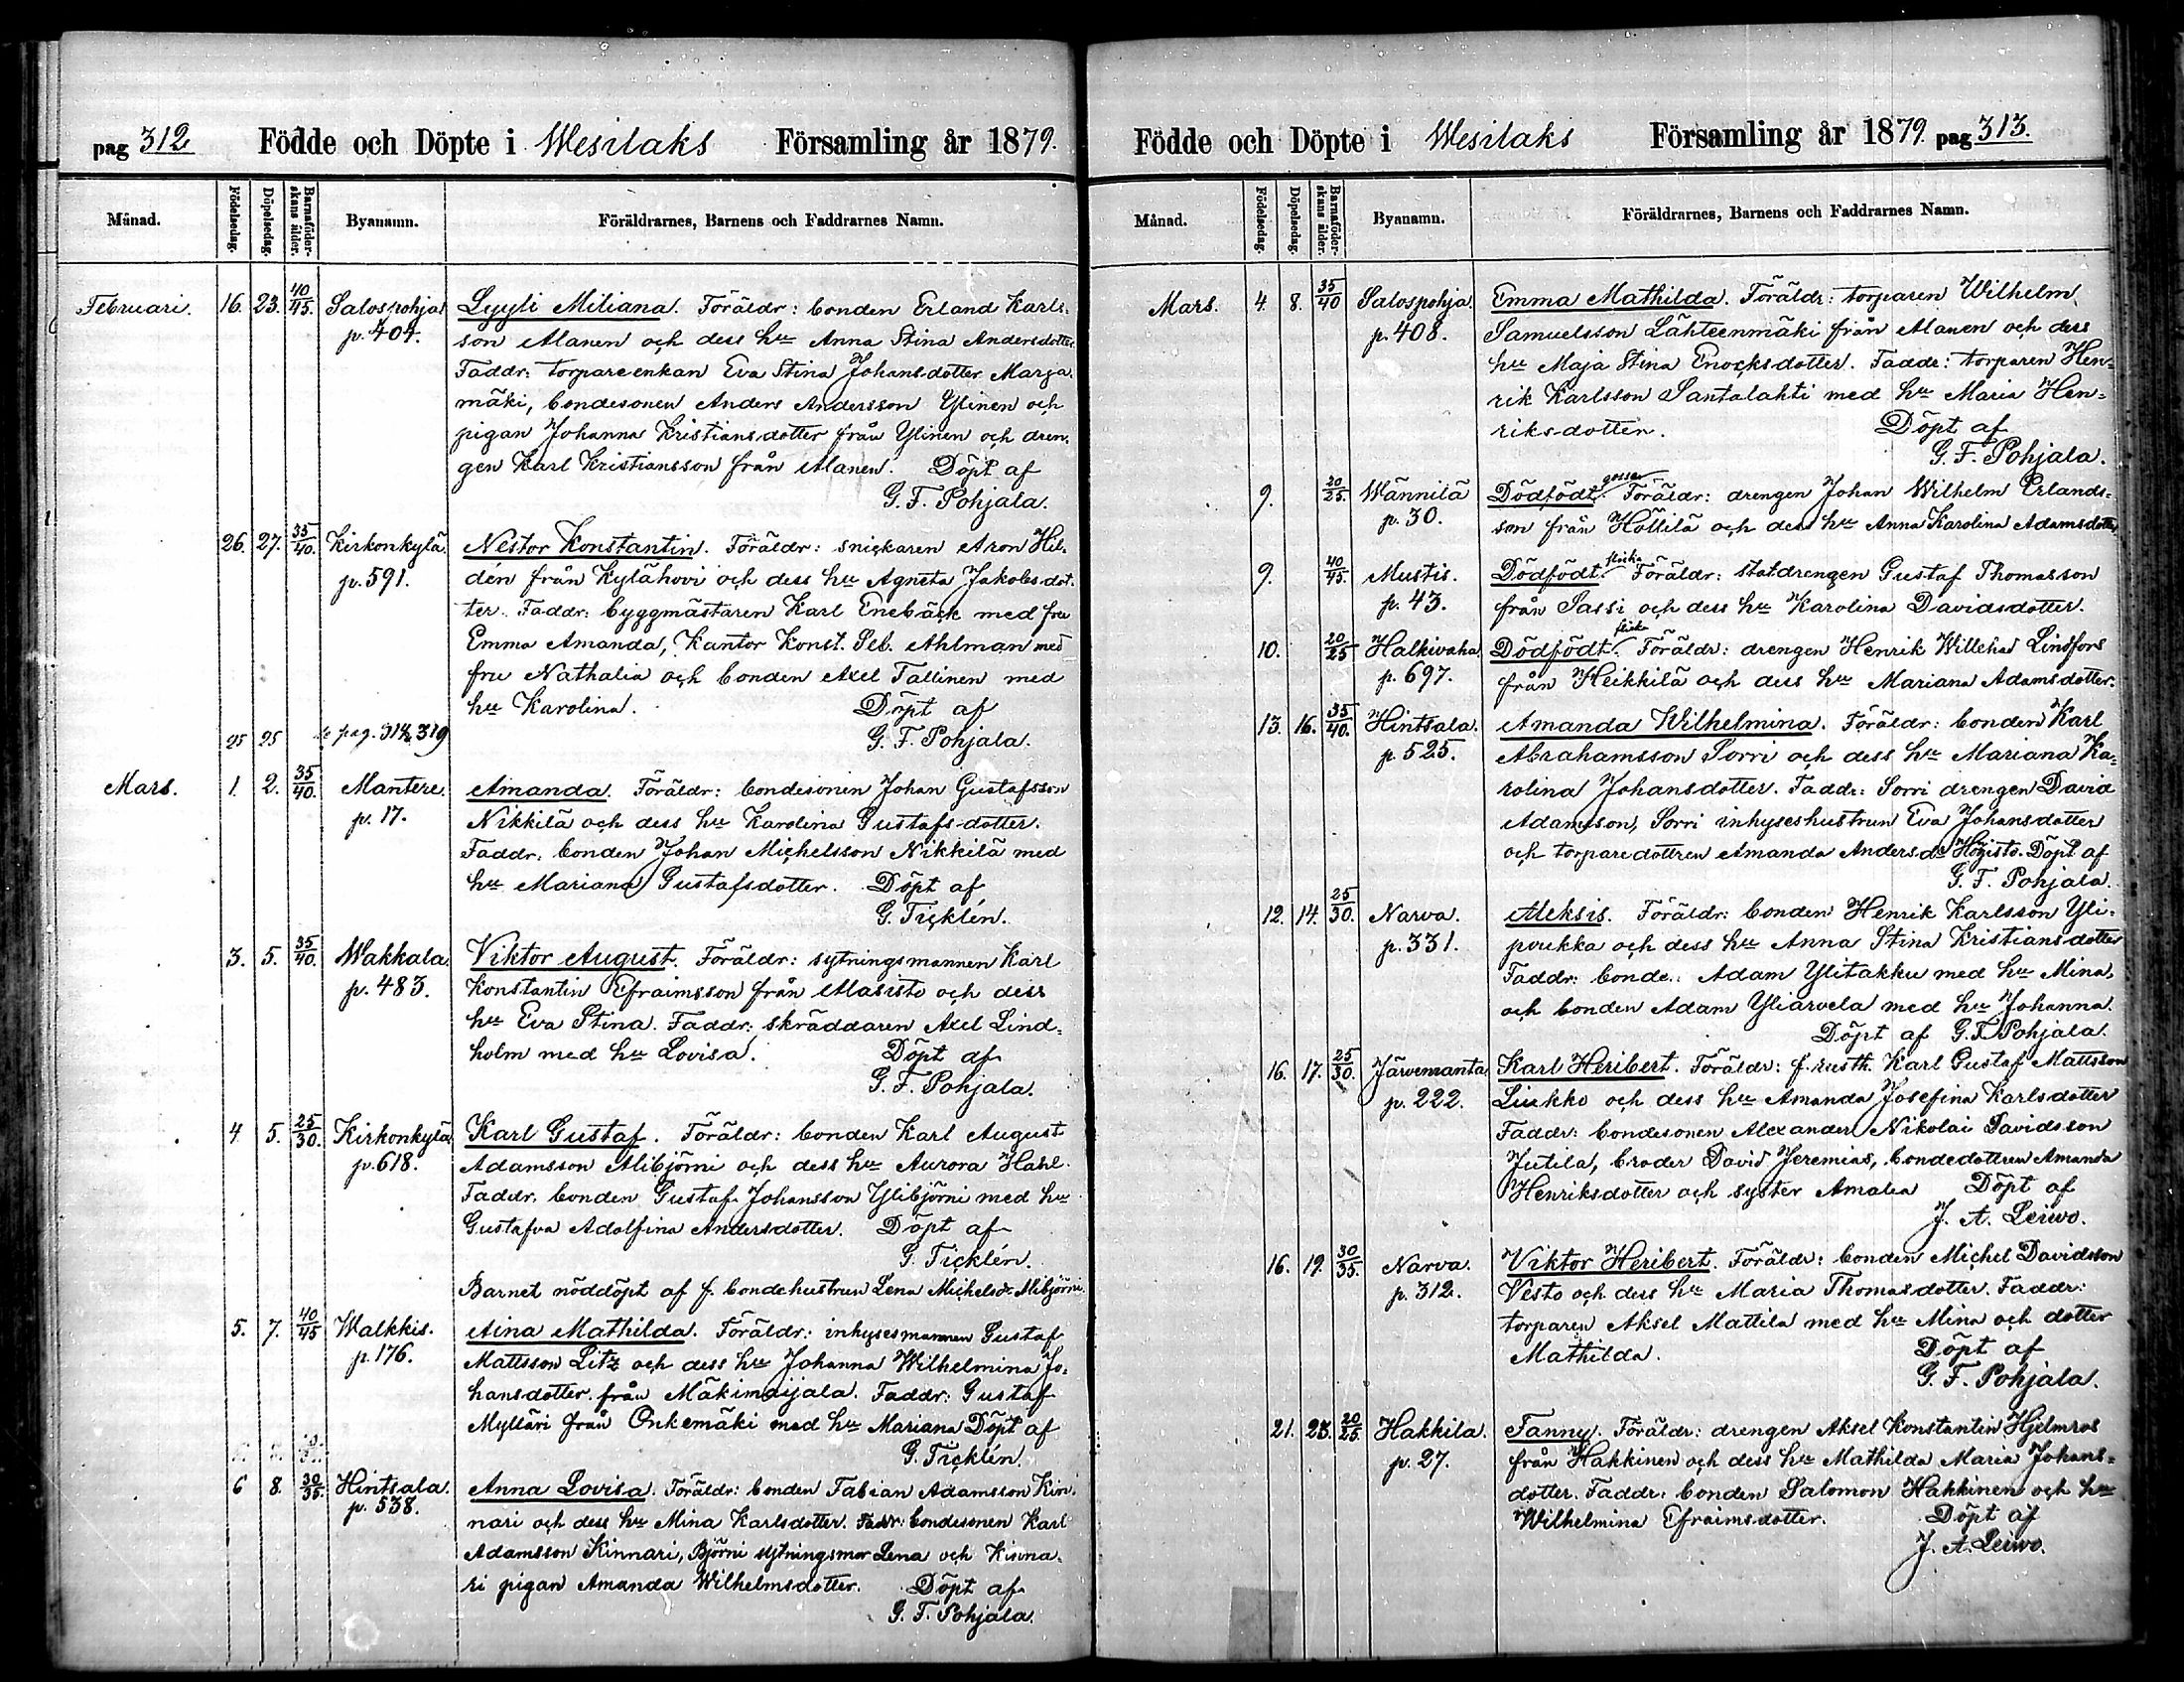 pag 312 Födde och Döpte i Wesilaks Församling år 1879.
Månad. Födelsedag. Döpelsedag. Barnaföder-skans ålder. Byanamn. Föräldrarnes, Barnens och Faddrarnes Namn.
Februari. 16. 23. 40/45. Salospohja Lyyli Miliana. Föräldr: bonden Erland Karls-
p. 404. son Alanen och dess hu Anna Stina Andersdotter
Faddr: torpareenkan Eva Stina Johansdotter Marja-
mäki, bondesonen Anders Andersson Ylinen och
pigan Johanna Kristiansdotter från Ylinen och dren-
gen Karl Kristiansson från Alanen. Döpt af
G. F. Pohjala.
26. 27. 35/40. Kirkonkylä Nestor Konstantin. Föräldr: snickaren Aron Hil-
p. 591. dén från Kylähovi och dess hu Agneta Jakobsdot-
ter. Faddr: byggmästaren Karl Enebäck med fru
Emma Amanda, Kantor Konst. Seb. Ahlman med
fru Nathalia och bonden Axel Tallinen med
hu Karolina. Döpt af
25 25 pag. 314 319 G. F. Pohjala.
Mars. 1. 2. 35/40. Mantere. Amanda. Föräldr: bondesonen Johan Gustafsson
p. 17. Nikkilä och dess hu Karolina Gustafsdotter.
Faddr: bonden Johan Michelsson Nikkilä med
hu Mariana Gustafsdotter. Döpt af
G. Ticklén.
3. 5. 35/40. Wakkala. Viktor August. Föräldr: sytningsmannen Karl
p. 483. Konstantin Efraimsson från Alasisto och dess
hu Eva Stina. Faddr: skräddaren Axel Lind-
holm med hu Lovisa. Döpt af
G. F. Pohjala.
4. 5. 25/30. Kirkonkylä Karl Gustaf. Föräldr: bonden Karl August
p. 618. Adamsson Alibjörni och dess hu Aurora Hahl.
Faddr. bonden Gustaf Johansson Ylibjörni med hu
Gustafva Adolfina Andersdotter. Döpt af
G. Ticklén.
Barnet nöddöpt af f. bondehustrun Lena Michelsdr Alibjörni.
5. 7. 40/45 Walkkis. Aina Mathilda. Föräldr: inhysesmannen Gustaf
p. 176. Mattsson Litz och dess hu Johanna Wilhelmina Jo-
hansdotter från Mäkimaijala. Faddr: Gustaf
Mylläri från Onkemäki med hu Mariana Döpt af
G. Ticklén.
6 8. 30/35. Hintsala. Anna Lovisa. Föräldr: bonden Fabian Adamsson Kin-
p. 538. nari och dess hu Mina Karlsdotter. Faddr: bondesonen Karl
Adamsson Kinnari, Björni sytningsmor Lena och Kinna-
ri pigan Amanda Wilhelmsdotter. Döpt af
G. F. Pohjala.
Födde och Döpte i Wesilaks Församling år 1879. pag 313.
Månad. Födelsedag. Döpelsedag. Barnaföder-skans ålder. Byanamn. Föräldrarnes, Barnens och Faddrarnes Namn.
Mars. 4. 8. 35/40 Salospohja. Emma Mathilda. Föräldr: torparen Wilhelm
p. 408. Samuelsson Lähteenmäki från Alanen och dess
hu Maja Stina Enocksdotter. Faddr: torparen Hen-
rik Karlsson Santalahti med hu Maria Hen-
riksdotter. Döpt af
G. F. Pohjala.
9. 20/25. Wännilä Dödfödt gosse. Föräldr: drengen Johan Wilhelm Erlands-
p. 30. son från Höttilä och dess hu Anna Karolina Adamsdotter
9. 40/45. Mustis. Dödfödt flicka. Föräldr: statdrengen Gustaf Thomasson
p. 43. från Sassi och dess hu Karolina Davidsdotter.
10. 20/25 Halkivaha. Dödfödt flicka. Föräldr: drengen Henrik Willehad Lindfors
p. 697. från Heikkilä och dess hu Mariana Adamsdotter.
13. 16. 35/40. Hintsala. Amanda Wilhelmina. Föräldr: bonden Karl
p. 525. Abrahamsson Sorri och dess hu Mariana Ka-
rolina Johansdotter. Faddr: Sorri drengen David
Adamsson, Sorri inhyseshustrun Eva Johansdotter
och torparedottren Amanda Andersdr Högisto. Döpt af
G. F. Pohjala.
12. 14. 25/30. Narva. Aleksis. Föräldr: bonden Henrik Karlsson Yli-
p. 331. poukka och dess hu Anna Stina Kristiansdotter
Faddr: bonde. Adam Ylitakku med hu Mina,
och bonden Adam Yliarvela med hu Johanna.
Döpt af G. F. Pohjala.
16. 17. 25/30. Järvenranta Karl Heribert. Föräldr: f. rusth. Karl Gustaf Mattsson
p. 222. Liukko och dess hu Amanda Josefina Karlsdotter
Faddr: bondesonen Alexander Nikolai Davidsson
Jutila, broder David Jeremias, bondedottren Amanda
Henriksdotter och syster Amalia Döpt af
J. A. Leiwo.
16. 19. 30/35. Narva. Viktor Heribert. Föräldr: bonden Michel Davidsson
p. 312. Vesto och dess hu Maria Thomasdotter. Faddr:
torparen Aksel Mattila med hu Mina och dotter
Mathilda. Döpt af
G. F. Pohjala.
21. 23. 20/25. Hakkila. Fanny. Föräldr: drengen Aksel Konstantin Hjelmros
p. 27. från Hakkinen och dess hu Mathilda Maria Johans-
dotter. Faddr: bonden Salomon Hakkinen och hu
Wilhelmina Efraimsdotter. Döpt af
J. A. Leiwo.